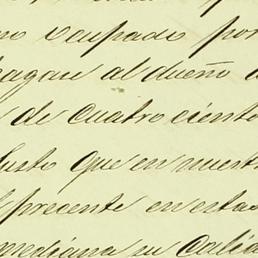 no ocupado por
hagan al dueño d
de cuatro ciento
Justo que en nuestr
precente en esta
mediana su calid